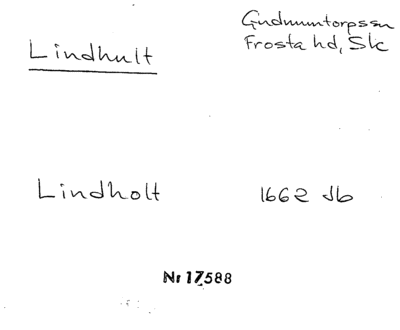 Lindhult
Gudmuntorpssn
Frosta hd, Sk
Lindholt 1662 Jb
Nr 17588